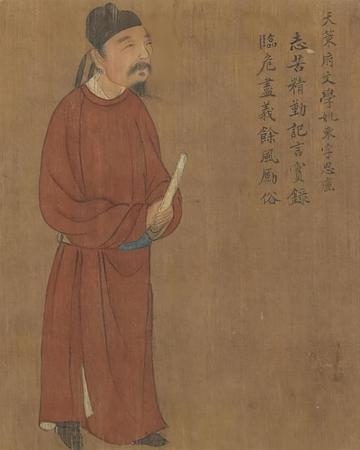 天策府文學姚柬字思廉
志苦精勤記言實錄
臨危盡義餘風勵俗